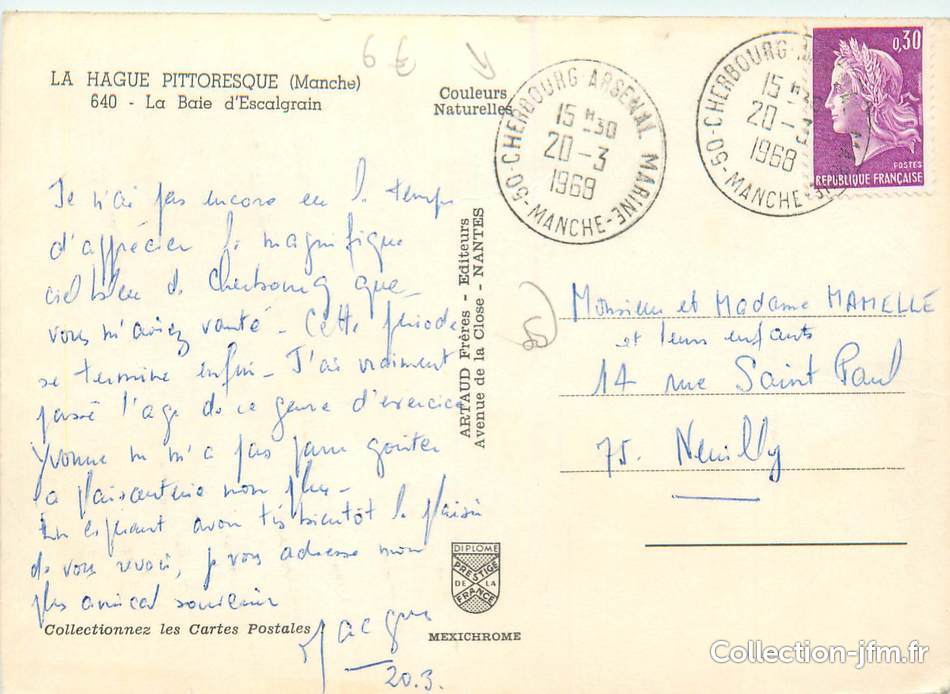 LA HAGUE PITTORESQUE (Manche)
640 - La Baie d'Escalgrain
Couleurs
Naturelles
6 €
50-CHERBOURG ARSENAL MARINE-MANCHE-
15 H30
20-3
1968
50-CHERBOURG
15 H30
20-3
1968
MANCHE
0,30
POSTES
RÉPUBLIQUE FRANÇAISE
Je n'ai pas encore eu le temps
d'apprécier le magnifique
ciel bleu de Cherbourg que
vous m'aviez vanté - Cette période
se termine enfin - J'ai vraiment
passé l'age de ce genre d'exercice
Yvonne ne m'a pas paru goûter
la plaisanterie non plus -
En espérant avoir très bientôt le plaisir
de vous revoir, je vous adresse mon
plus amical souvenir
Jacques
20.3.
ARTAUD Frères - Editeurs
Avenue de la Close - NANTES
50
Monsieur et Madame MAMELLE
et leurs enfants
14 rue Saint Paul
75. Neuilly
DIPLOME
PRESTIGE
DE LA
FRANCE
MEXICHROME
Collectionnez les Cartes Postales
Collection-jfm.fr